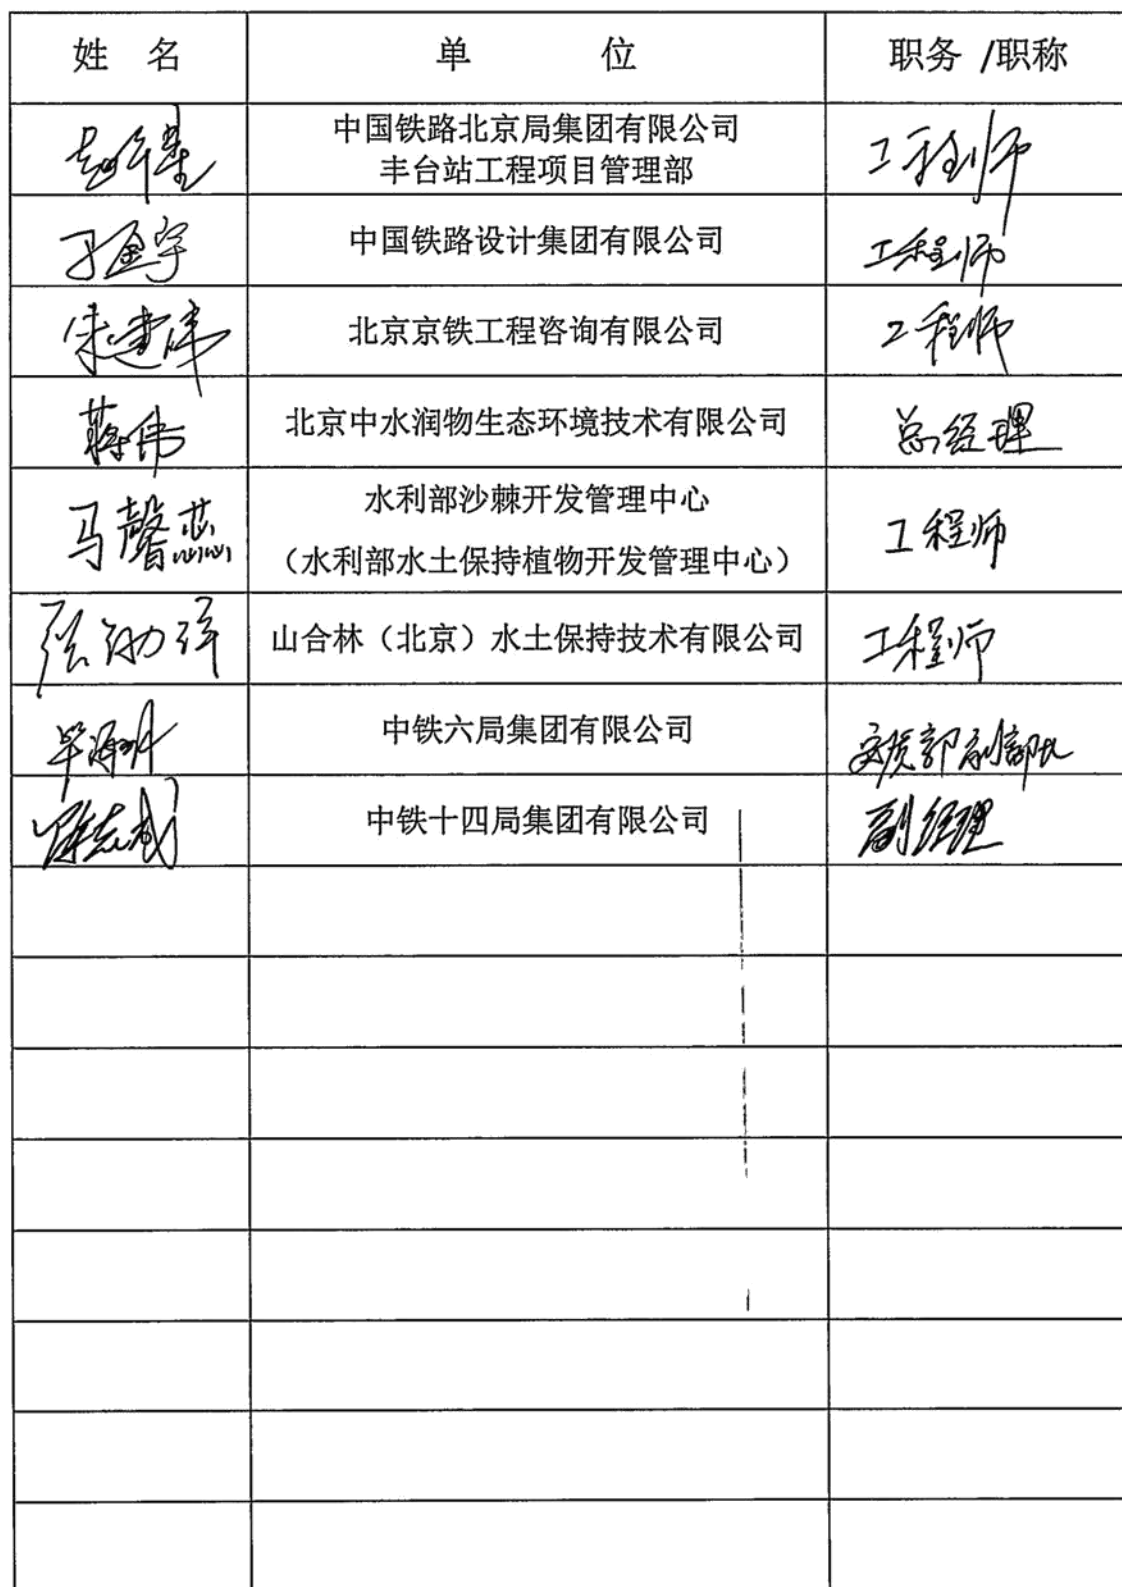 姓 名 单 位 职务 /职称
中国铁路北京局集团有限公司
丰台站工程项目管理部
工程师
中国铁路设计集团有限公司
工程师
朱建伟 北京京铁工程咨询有限公司 工程师
蒋伟 北京中水润物生态环境技术有限公司 总经理
马馨蕊
水利部沙棘开发管理中心
(水利部水土保持植物开发管理中心)
工程师
山合林(北京)水土保持技术有限公司 工程师
中铁六局集团有限公司 安质部副部长
中铁十四局集团有限公司 副经理